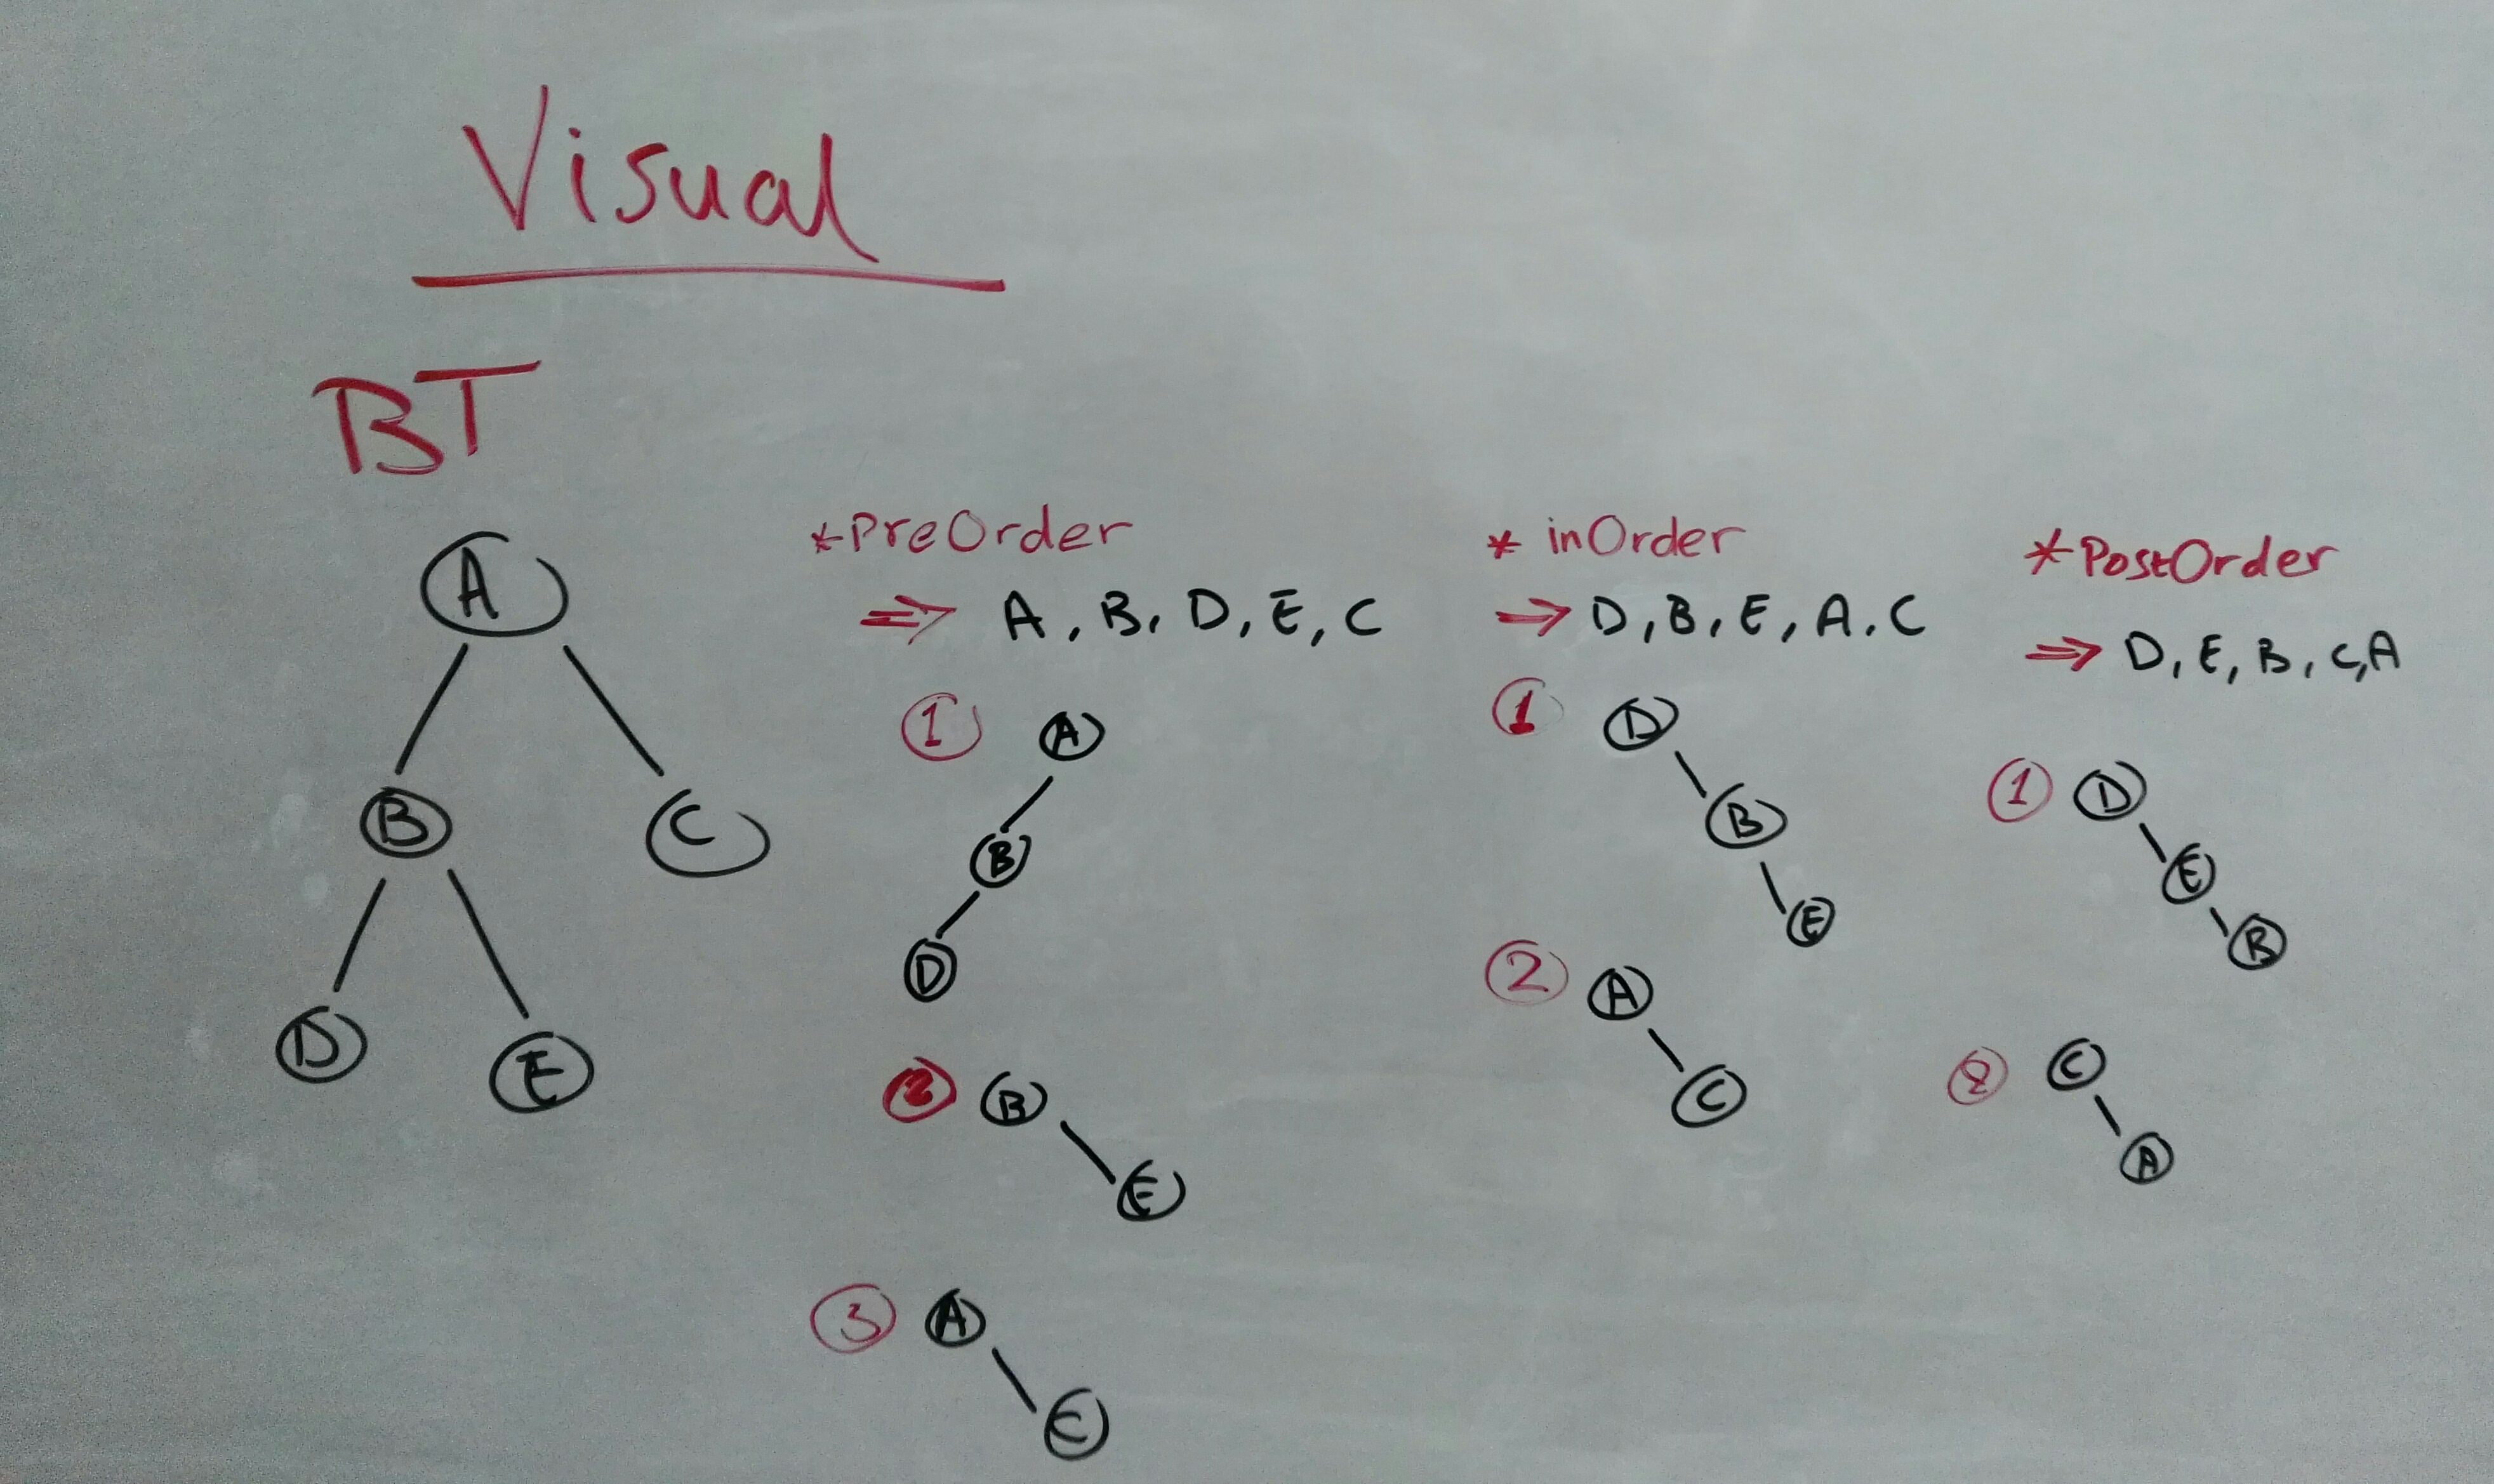 Visual
BT
A
B
C
D
E
*PreOrder
⇒ A, B, D, E, C
1 A
B
D
2 B
E
3 A
C
* inOrder
⇒ D, B, E, A, C
1 D
B
E
2 A
C
*PostOrder
⇒ D, E, B, C, A
1 D
E
B
2 C
A